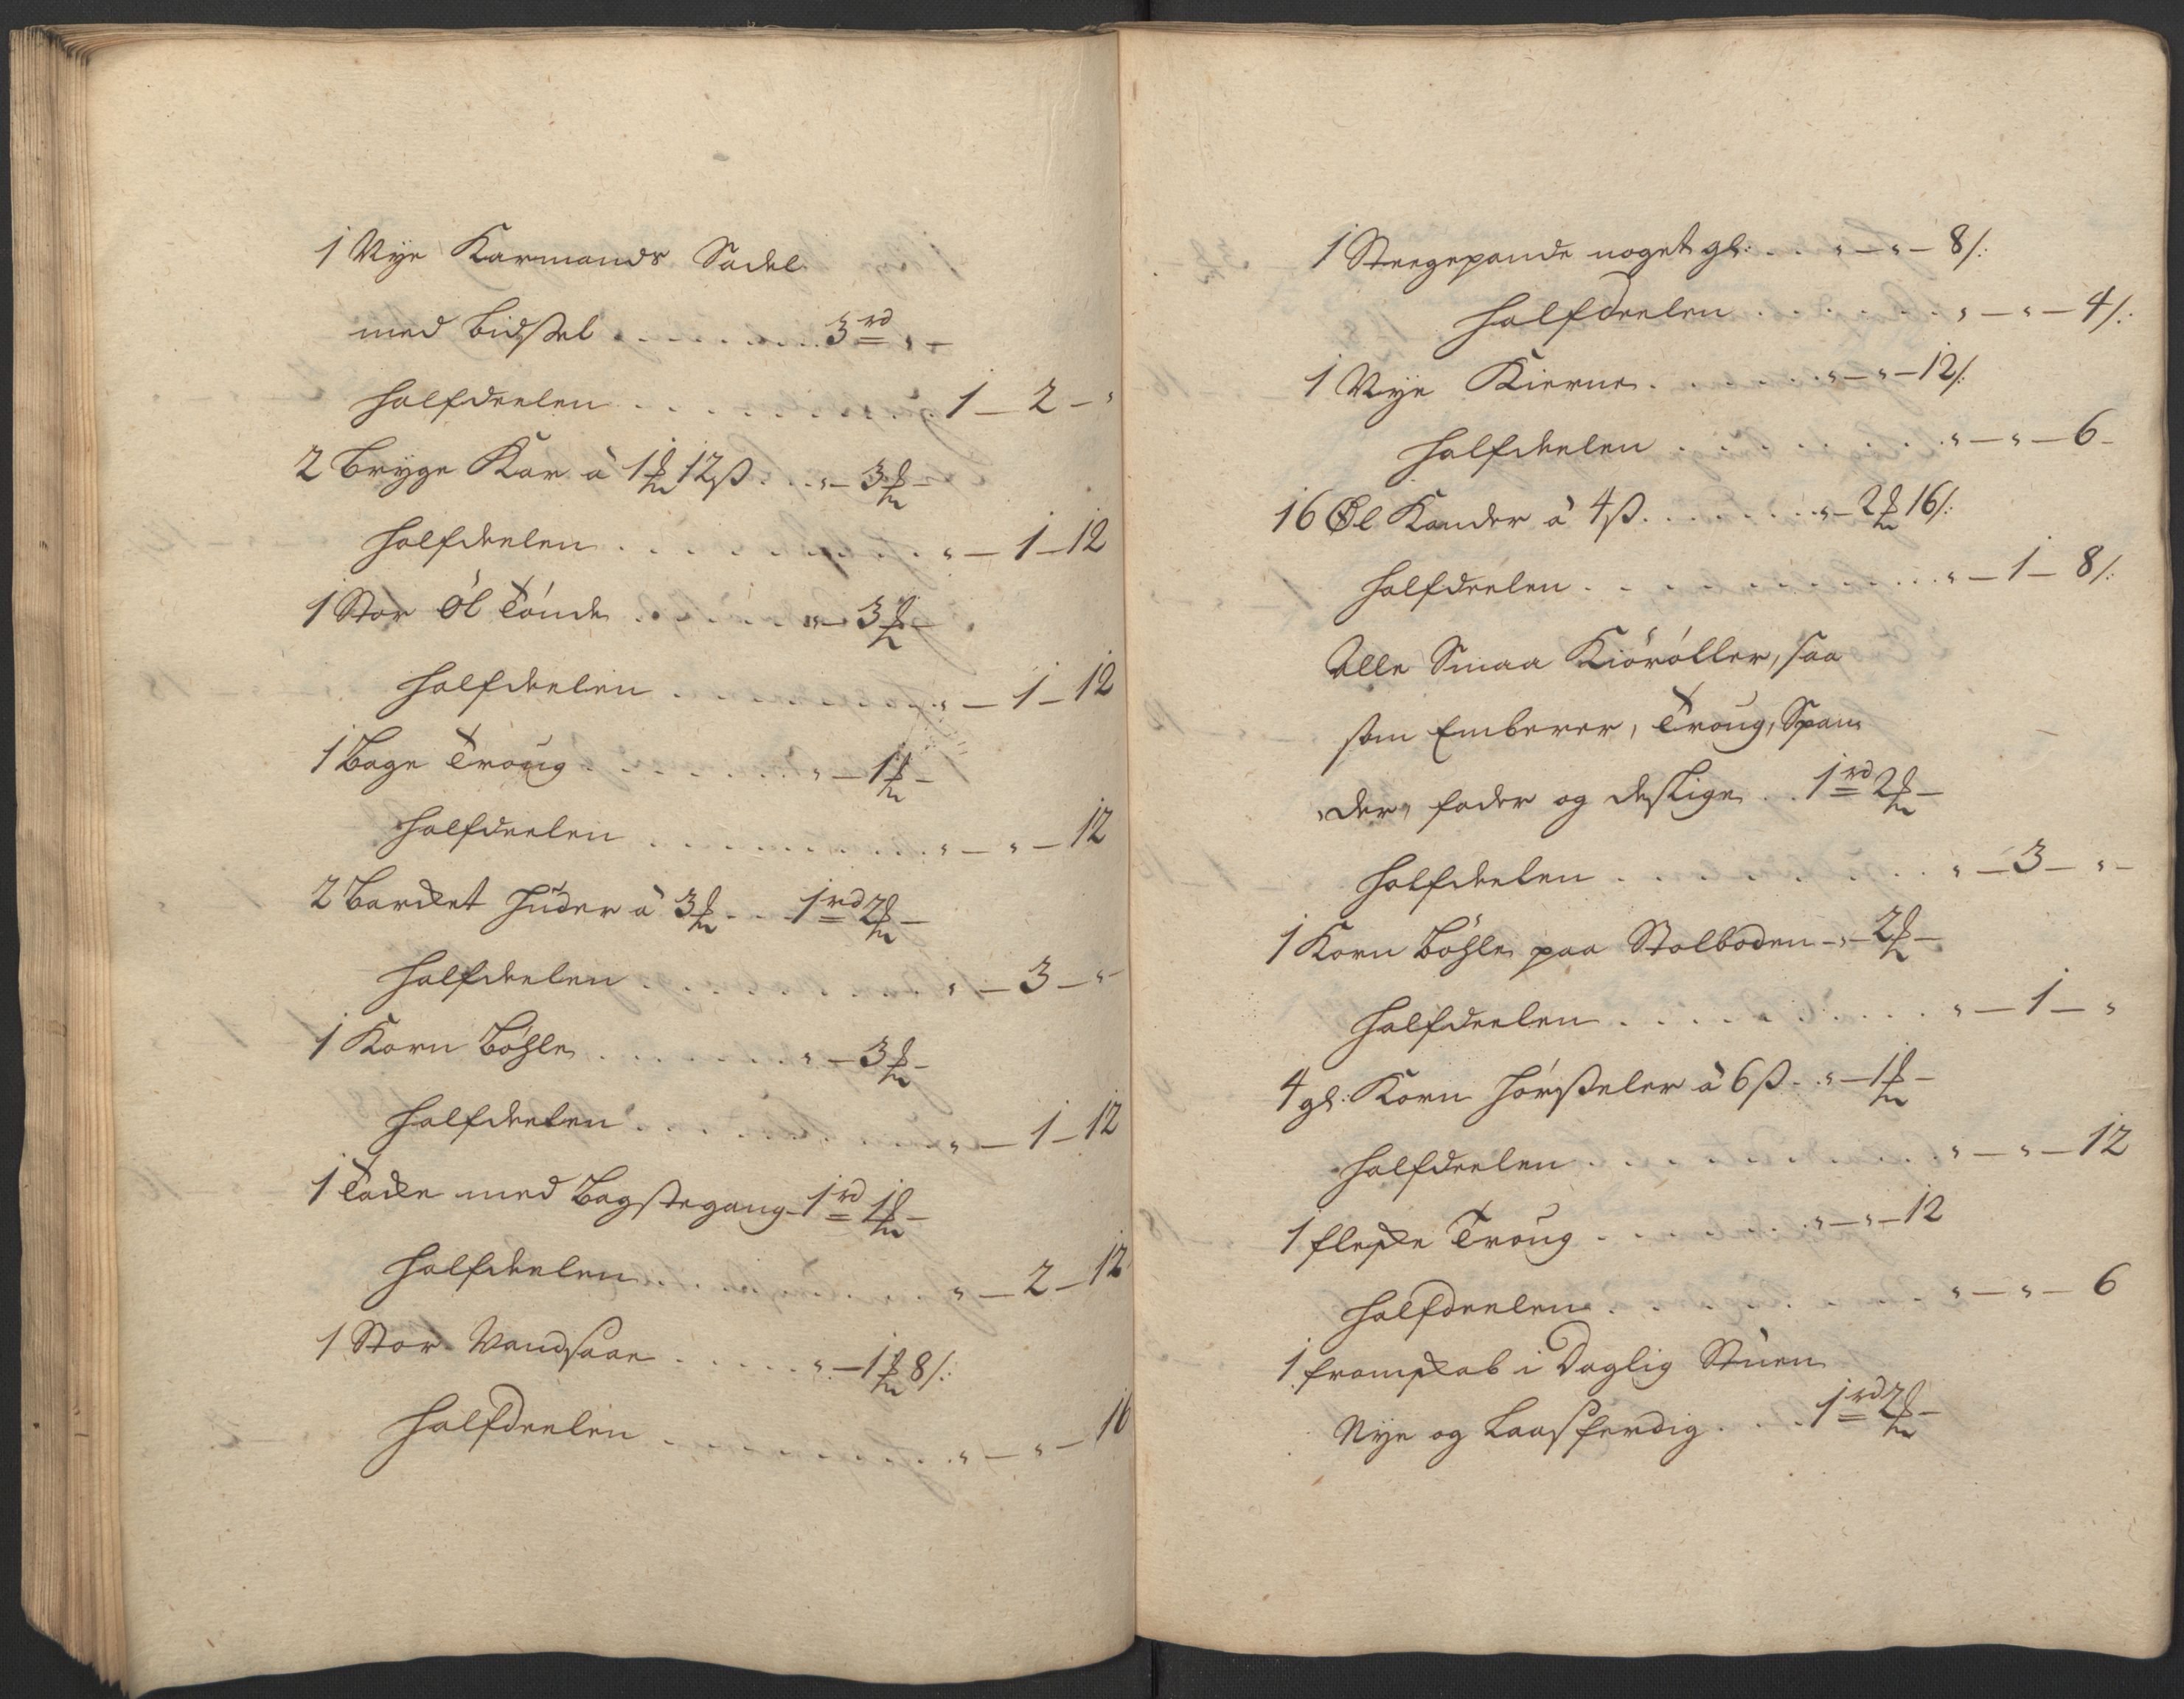 1 Nye Karmands Sadel
med Bidssel . . . . . . . 3 rd " –
Halfdeelen . . . . . . . . 1 – 2 – "
2 Brygge Kar à 1 ℳ 12 ß . . " – 3 ℳ –
Halfdeelen . . . . . . . . " – 1 – 12
1 Stor Öl Tönde . . . . " – 3 ℳ –
Halfdeelen . . . . . . . . " – 1 – 12
1 Bage Troug . . . . . . " – 1 ℳ –
Halfdeelen . . . . . . . . " – " – 12
2 Barcket Huder à 3 ℳ . . 1 rd 2 ℳ –
Halfdeelen . . . . . . . . " – 3 – "
1 KornBöhle . . . . . . " – 3 ℳ –
Halfdeelen . . . . . . . . " – 1 – 12
1 Tacke med Bagstegang – 1 rd 1 ℳ –
Halfdeelen . . . . . . . . " – 2 – 12
1 Stor Vandsaae . . . . . " – 1 ℳ 8 /:
Halfdeelen . . . . . . . . " – " – 16
1 Steegepande noget gl: . . . " – " – 8 /:
Halfdeelen . . . . . . . " – " – 4 /:
1 Nye Kierne . . . . . . " – " – 12 /:
Halfdeelen . . . . . . . . " – " – 6 –
16 Øl Kander à 4 ß . . . . . " – 2 ℳ 16 /:
Halfdeelen . . . . . . . . " – 1 – 8 /:
Alle Smaa Kiöröller, saa
som Emberer, Troug, Span
der, fader og deslige . . 1 rd 2 ℳ –
Halfdeelen . . . . . . . . " – 3 – " –
1 Korn Böhle paa Stolboden – " – 2 ℳ –
Halfdeelen . . . . . . . . " – 1 – "
4 gl: Korn Hörsseler à 6 ß . " – 1 ℳ –
Halfdeelen . . . . . . . . " – " – 12
1 fleske Troug . . . . . . " – " – 12
Halfdeelen . . . . . . . . " – " – 6
1 framskab i Daglig Stuen
Nye og Laasferdig . . . . 1 rd 2 ℳ –